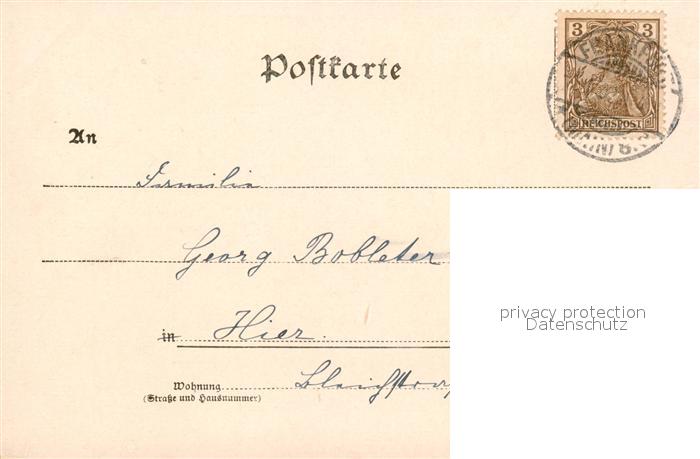 3
REICHSPOST
Postkarte
An
Familie
Georg Bobleter
in Hier.
privacy protection
Datenschutz
Wohnung
(Straße und Hausnummer)